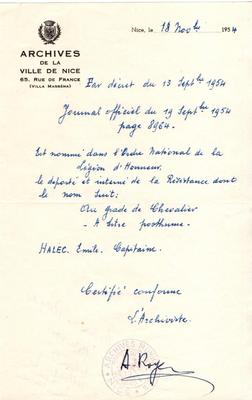 Nice, le 18 Novbre 1954
ARCHIVES
DE LA
VILLE DE NICE
65, RUE DE FRANCE
(VILLA MASSÉNA)
Par décret du 13 Septbre 1954
Journal officiel du 19 Septbre 1954
page 8964.
Est nommé dans l'Ordre National de la
Légion d'Honneur.
le déporté et interné de la Résistance dont
le nom suit:
Au grade de Chevalier
- A titre posthume -
HALEC. Emile. Capitaine.
Certifié conforme
L'Archiviste.